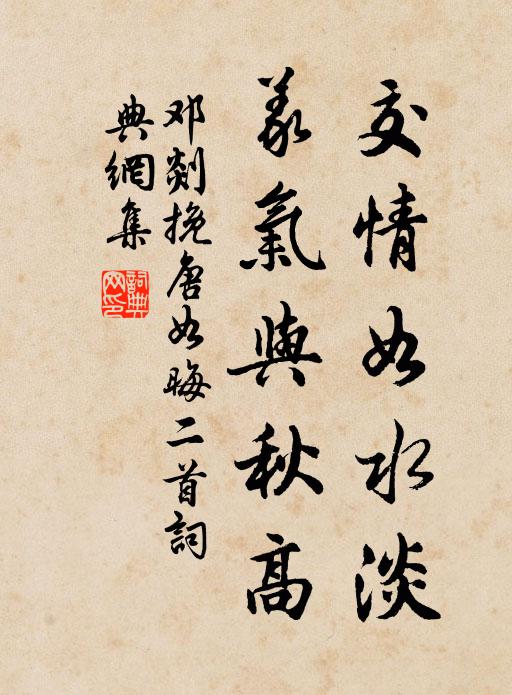 交情如水淡
義氣與秋高
邓剡挽唐如晦二首詞
典網集
詞典網印